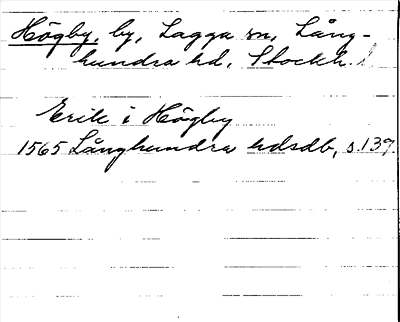 Högby, by, Lagga sn, Lång-
hundra hd, Stockh. l
Erik i Högby
1565 Långhundra hdsdb, s. 139